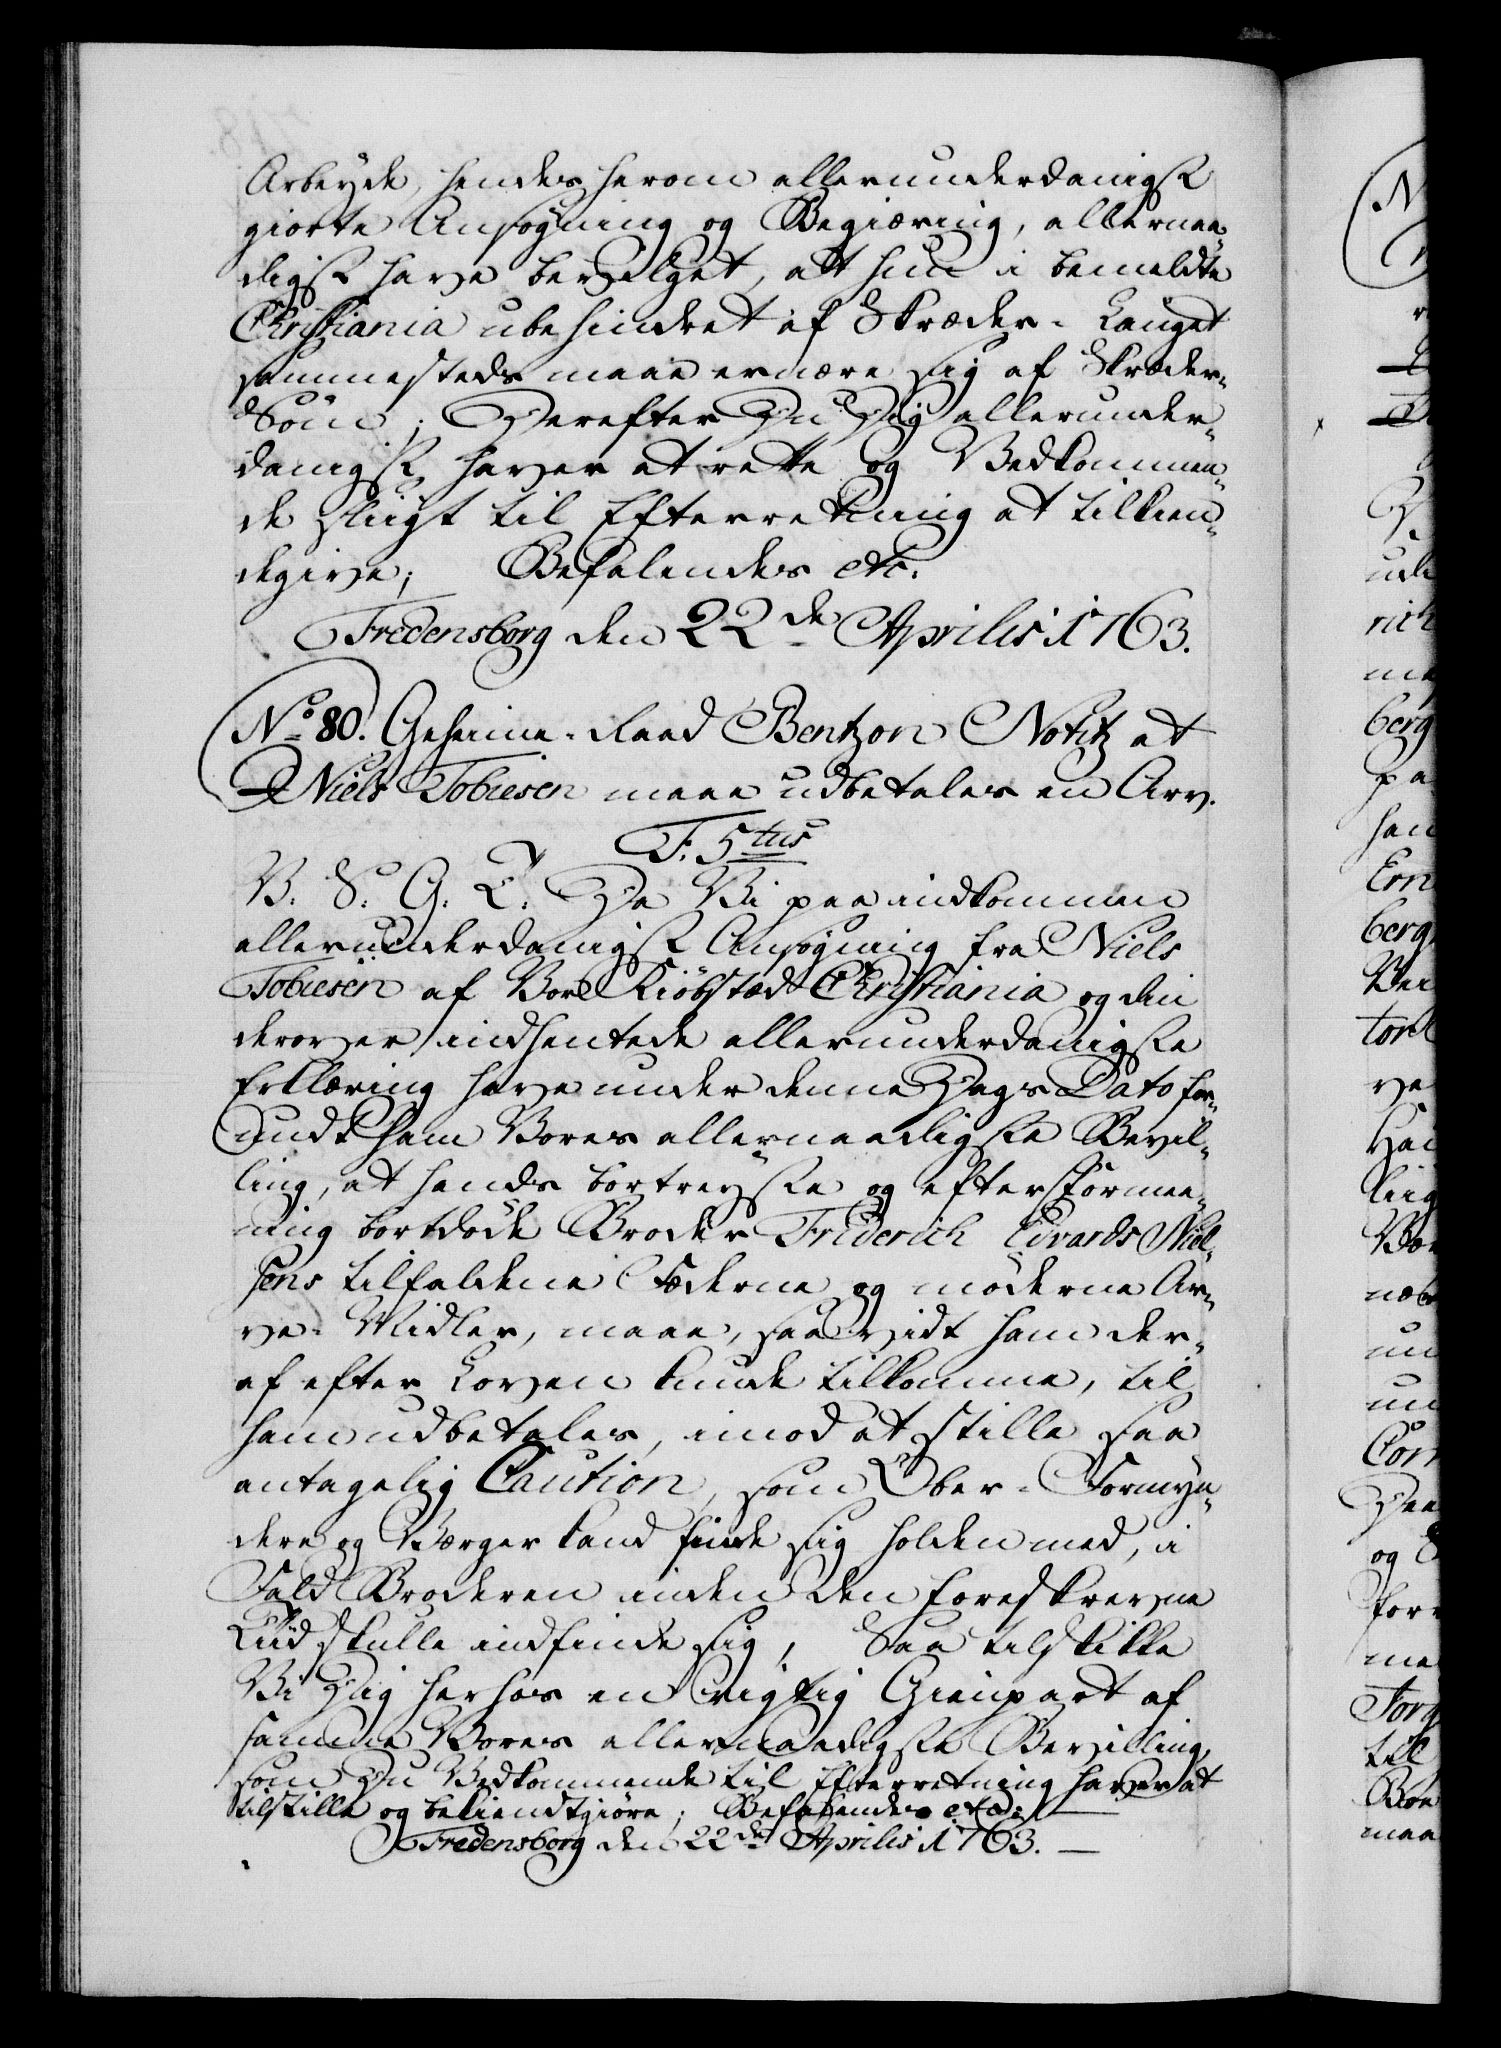 Arbeyde, hendes herom allerunderdanigst
giorte Ansøgning og Begiæring, allernaa-
digst have bevilget, at hun i bemeldte
Christiania ubehindret af Skræder-Lauget
sammesteds maae ernære sig af Skræder-
Søm; Derefter Du Dig allerunder-
danigst haver at rette og Vedkommen-
de sligt til Efterretning at tilkien-
degive; Befalendes etc.
Fredensborg den 22de Aprilis 1763.
No 80. Geheime-Raad Bentzon Notitz at
Niels Tobiesen maae udbetales en Arv.
F: 5tus
V. S. G. T. Da Vi paa indkommen
allerunderdanigst Ansøgning fra Niels
Tobiesen af Vor Kiøbstæd Christiania og din
derover indhentede allerunderdanigste
Erklæring have under denne Dags Dato for-
undt ham Vores allernaadigste Bevil-
ling, at hands bortreyste og efter Formee-
ning bortdøde Broder Friderich Edvards Niel-
sens tilfaldene Fæderne og møderne Ar-
ve-Midler, maae, saavidt ham der-
af efter Loven kunde tilkomme, til
ham udbetales, imod at stille saa
antagelig Caution, som Ober-Formyn-
dere og Værger kand finde sig holden med, i
Fald Broderen inden den foreskrevne
Tiid skulle indfinde sig, Saa tilskikke
Vi Dig herhos en rigtig Gienpart af
samme Vores allernaadigste Bevilling,
som Du Vedkommende til Efterretning haver at
tilstille og bekiendtgiøre; Befalendes etc:
Fredensborg den 22de Aprilis 1763.